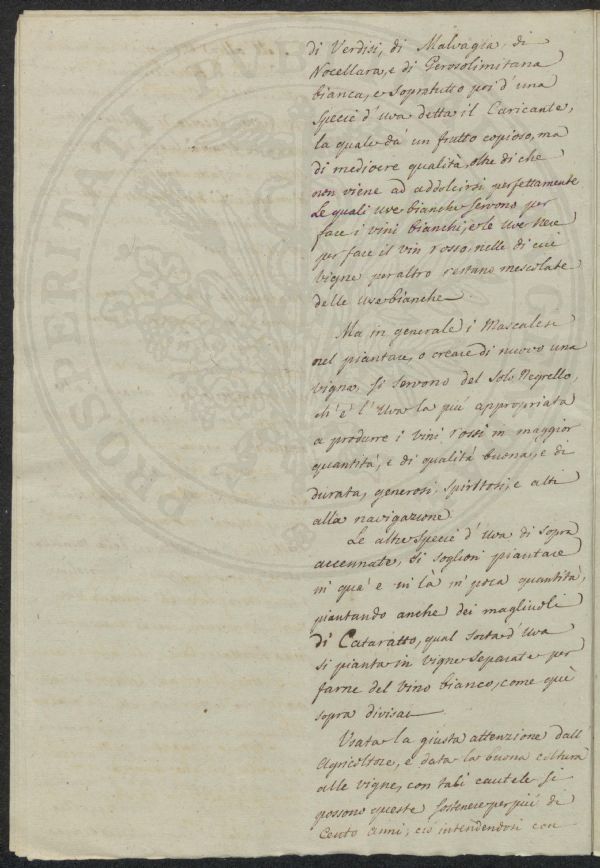 di Verdisi, di Malvagia, di
Nocellara, e di Gerosolimitana
bianca, e Sopratutto poi d'una
Specie d'uva detta il Caricante,
la quale dà un frutto copioso, ma
di mediocre qualità, oltre di che
non viene ad addolcirsi perfettamente
Le quali uve bianche servono per
fare i vini bianchi, e le uve nere
per fare il vin rosso, nelle di cui
vigne per altro restano mescolate
delle uve bianche
Ma in generale i Mascalesi
nel piantare, o creare di nuovo una
vigna, si servono del solo Negrello,
ch'è l'Uva la più appropriata
a produrre i vini rossi in maggior
quantità, e di qualità buona, e di
durata, generosi, spiritosi, e atti
alla navigazione
Le altre specie d'Uva di sopra
accennate, si soglion piantare
in quà e in là in poca quantità,
piantando anche dei magliuoli
di Cataratto, qual sorta d'Uva
si pianta in vigne separate per
farne del vino bianco, come quì
sopra divisai
Usata la giusta attenzione dall'
Agricoltore, e data la buona coltura
alle vigne, con tali cautele si
possono queste sostenere per più di
Cento anni; ciò intendendosi con
PRO VERITATI